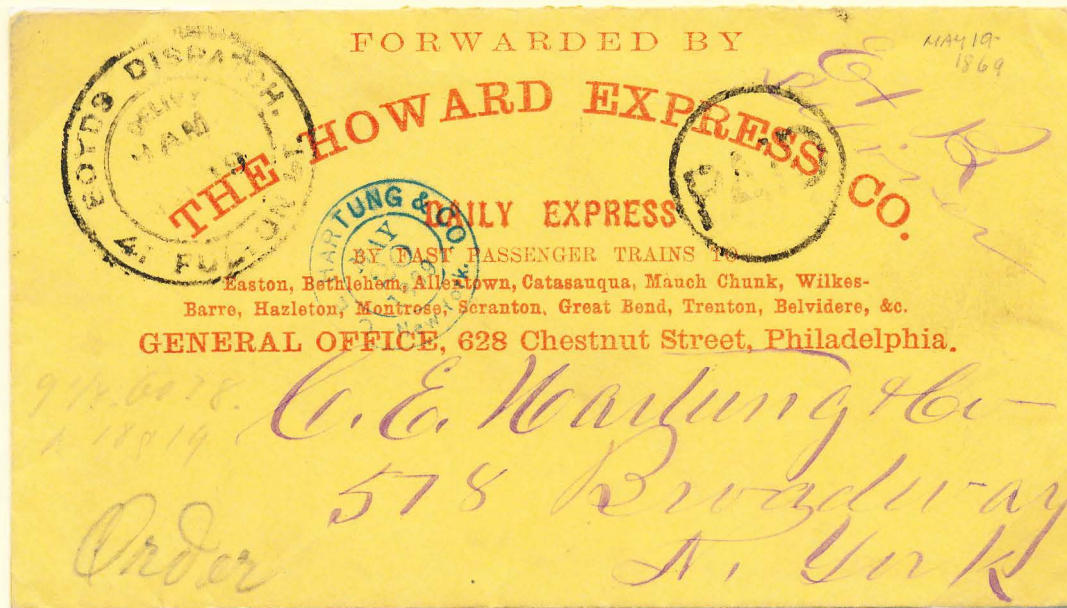 FORWARDED BY
MAY 19
1869
THE HOWARD EXPRESS CO.
BOYD'S DISPATCH.
AM
19
41 FULTON ST
PAID
DAILY EXPRESS
HARTUNG & CO
MAY
20
New York.
BY FAST PASSENGER TRAINS TO
Easton, Bethlehem, Allentown, Catasauqua, Mauch Chunk, Wilkes-
Barre, Hazleton, Montrose, Scranton, Great Bend, Trenton, Belvidere, &c.
GENERAL OFFICE, 628 Chestnut Street, Philadelphia.
C. E. Hartung & Co
578 Broadway
N. York
Order